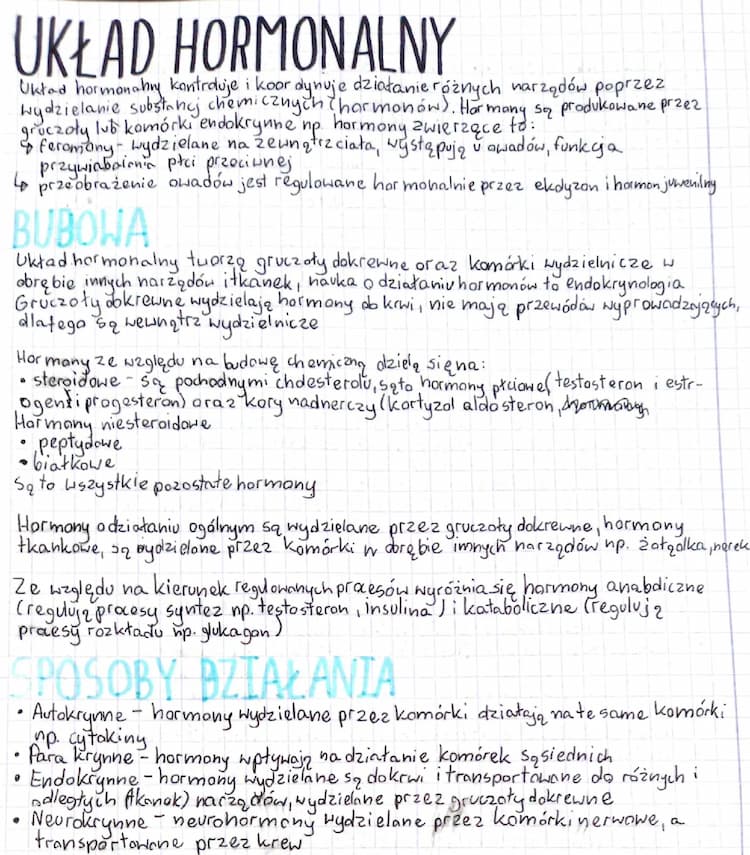 UKŁAD HORMONALNY
Układ hormonalny kontroluje i koordynuje działanie różnych narządów poprzez
wydzielanie substancji chemicznych (hormonów). Hormony są produkowane przez
gruczoły lub komórki endokrynne np. hormony zwierzące to:
↳ feromony - wydzielane na zewnątrz ciała, występują u owadów, funkcja
przywiabiania płci przeciwnej
↳ przeobrażenie owadów jest regulowane hormonalnie przez ekdyzon i hormon juwenilny
BUDOWA
Układ hormonalny tworzą gruczoły dokrewne oraz komórki wydzielnicze w
obrębie innych narządów i tkanek, nauka o działaniu hormonów to endokrynologia
Gruczoły dokrewne wydzielają hormony do krwi, nie mają przewodów wyprowadzających,
dlatego są wewnątrz wydzielnicze
Hormony ze względu na budowę chemiczną dzielą się na:
• steroidowe - są pochodnymi cholesterolu, są to hormony płciowe (testosteron i estr-
ogeny i progesteron) oraz kory nadnerczy (kortyzol aldosteron,
Hormony niesteroidowe
• peptydowe
• białkowe
Są to wszystkie pozostałe hormony
Hormony o działaniu ogólnym są wydzielane przez gruczoły dokrewne, hormony
tkankowe, są wydzielane przez komórki w obrębie innych narządów np. żołądka, nerek
Ze względu na kierunek regulowanych procesów wyróżnia się hormony anaboliczne
(regulują procesy syntez np. testosteron, insulina) i kataboliczne (regulują
procesy rozkładu np. glukagon)
SPOSOBY DZIAŁANIA
• Autokrynne - hormony wydzielane przez komórki działają na te same komórki
np. cytokiny
• Para krynne - hormony wpływają na działanie komórek sąsiednich
• Endokrynne - hormony wydzielane są do krwi i transportowane do różnych i
odległych (tkanek) narządów, wydzielane przez gruczoły dokrewne
• Neurokrynne - neurohormony wydzielane przez komórki nerwowe, a
transportowane przez krew